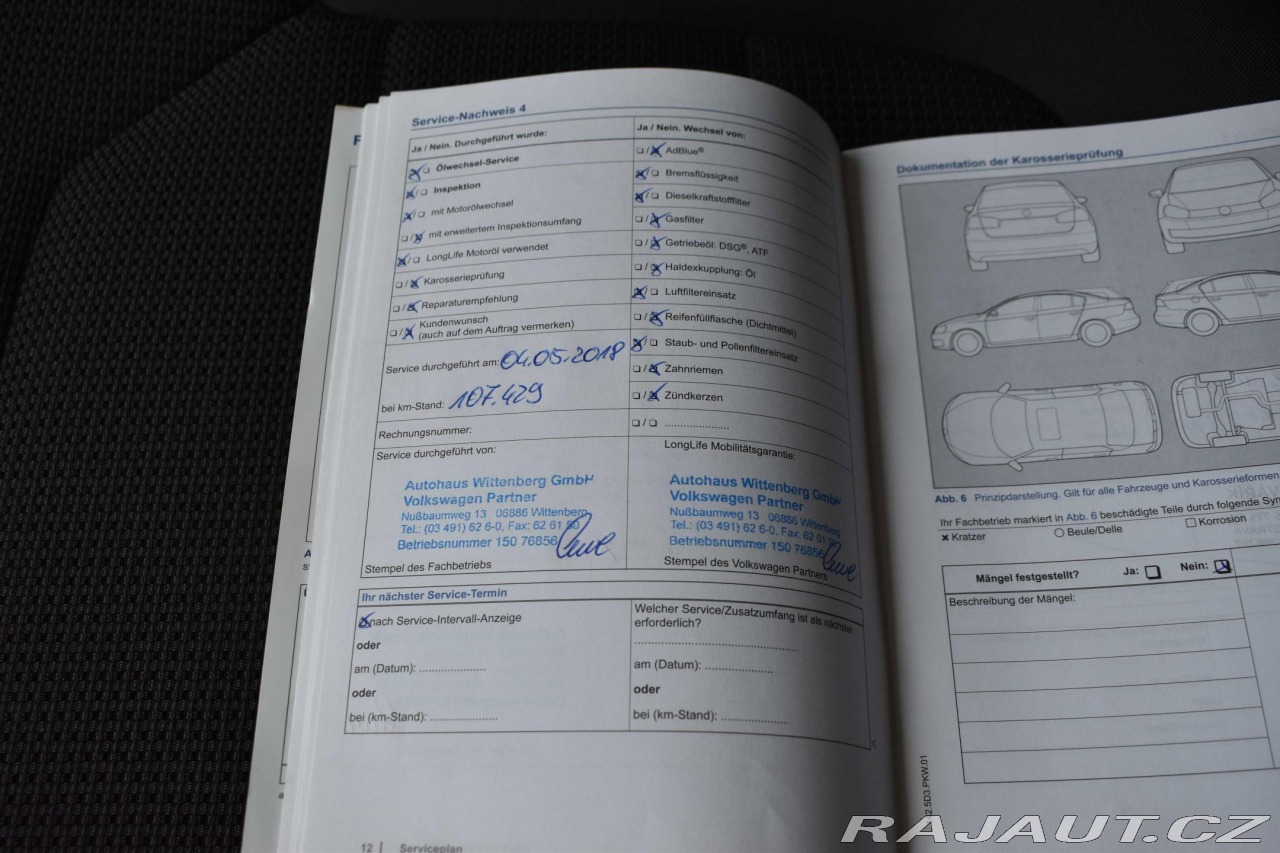 Service-Nachweis 4
Ja / Nein. Durchgeführt wurde:
Ölwechsel-Service
Inspektion
mit Motorölwechsel
mit erweitertem Inspektionsumfang
LongLife Motoröl verwendet
Karosserieprüfung
Reparaturempfehlung
Kundenwunsch
(auch auf dem Auftrag vermerken)
Service durchgeführt am: 04.05.2018
bei km-Stand: 107.429
Rechnungsnummer:
Service durchgeführt von:
Autohaus Wittenberg GmbH
Volkswagen Partner
Nußbaumweg 13 06886 Wittenberg
Tel.: (03 491) 62 6-0, Fax: 62 61 50
Betriebsnummer 150 76856
Stempel des Fachbetriebs
Ja / Nein. Wechsel von:
AdBlue®
Bremsflüssigkeit
Dieselkraftstofffilter
Gasfilter
Getriebeöl: DSG®, ATF
Haldexkupplung: Öl
Luftfiltereinsatz
Reifenfüllflasche (Dichtmittel)
Staub- und Pollenfiltereinsatz
Zahnriemen
Zündkerzen
LongLife Mobilitätsgarantie:
Autohaus Wittenberg GmbH
Volkswagen Partner
Nußbaumweg 13 06886 Wittenberg
Tel.: (03 491) 62 6-0, Fax: 62 61
Betriebsnummer 150 76856
Stempel des Volkswagen Partners
Ihr nächster Service-Termin
nach Service-Intervall-Anzeige
oder
am (Datum): ....................
oder
bei (km-Stand): ....................
Welcher Service/Zusatzumfang ist als nächster
erforderlich?
am (Datum): ....................
oder
bei (km-Stand): ....................
12 | Serviceplan
Dokumentation der Karosserieprüfung
Abb. 6 Prinzipdarstellung. Gilt für alle Fahrzeuge und Karosserieformen
Ihr Fachbetrieb markiert in Abb. 6 beschädigte Teile durch folgende
Kratzer Beule/Delle Korrosion
Mängel festgestellt? Ja: Nein:
Beschreibung der Mängel:
2.5D3.PKW.01
RAJAUT.CZ